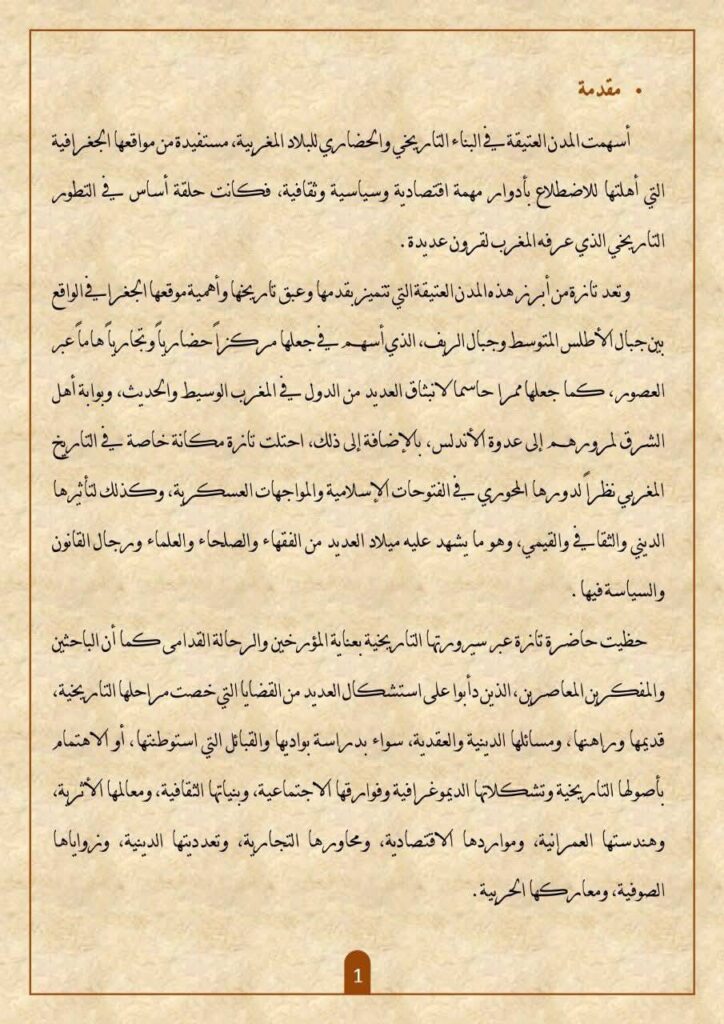 • مقدمة
أسهمت المدن العتيقة في البناء التاريخي والحضاري للبلاد المغربية، مستفيدة من مواقعها الجغرافية
التي أهلتها للاضطلاع بأدوار مهمة اقتصادية وسياسية وثقافية، فكانت حلقة أساس في التطور
التاريخي الذي عرفه المغرب لقرون عديدة .
وتعد تازة من أبرز هذه المدن العتيقة التي تتميز بقدمها وعبق تاريخها وأهمية موقعها الجغرافي الواقع
بين جبال الأطلس المتوسط وجبال الريف، الذي أسهم في جعلها مركزاً حضارياً وتجارياً هاماً عبر
العصور، كما جعلها ممرا حاسما لانبثاق العديد من الدول في المغرب الوسيط والحديث، وبوابة أهل
الشرق لمرورهم إلى عدوة الأندلس، بالإضافة إلى ذلك، احتلت تازة مكانة خاصة في التاريخ
المغربي نظراً لدورها المحوري في الفتوحات الإسلامية والمواجهات العسكرية، وكذلك لتأثيرها
الديني والثقافي والقيمي، وهو ما يشهد عليه ميلاد العديد من الفقهاء والصلحاء والعلماء ورجال القانون
والسياسة فيها .
حظيت حاضرة تازة عبر سيرورتها التاريخية بعناية المؤرخين والرحالة القدامى كما أن الباحثين
والمفكرين المعاصرين، الذين دأبوا على استشكال العديد من القضايا التي خصت مراحلها التاريخية،
قديمها وراهنها، ومسائلها الدينية والعقدية، سواء بدراسة بواديها والقبائل التي استوطنتها، أو الاهتمام
بأصولها التاريخية وتشكلاتها الديموغرافية وفوارقها الاجتماعية، وبنياتها الثقافية، ومعالمها الأثرية،
وهندستها العمرانية، ومواردها الاقتصادية، ومحاورها التجارية، وتعدديتها الدينية، وزواياها
الصوفية، ومعاركها الحربية .
1